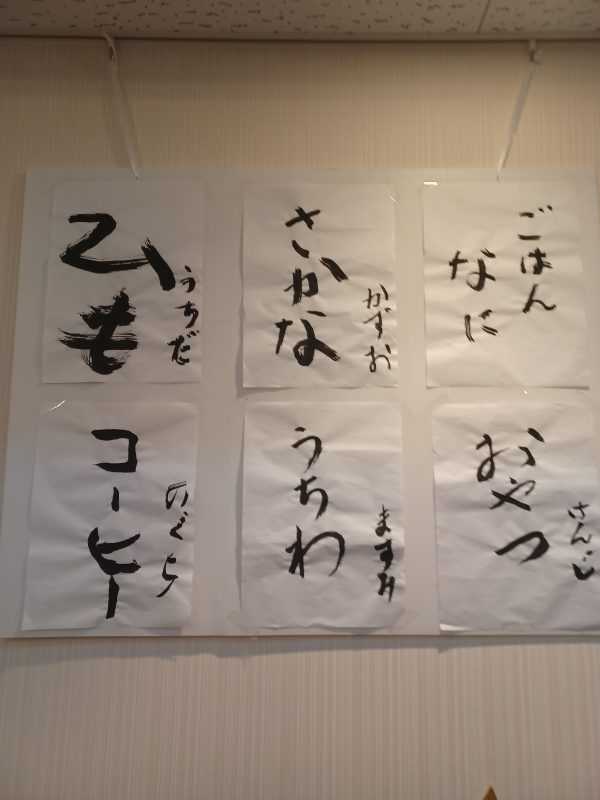 ごはん
なに
かずお
さかな
うちだ
ひも
さんじ
おやつ
ますみ
うちわ
のぐち
コーヒー